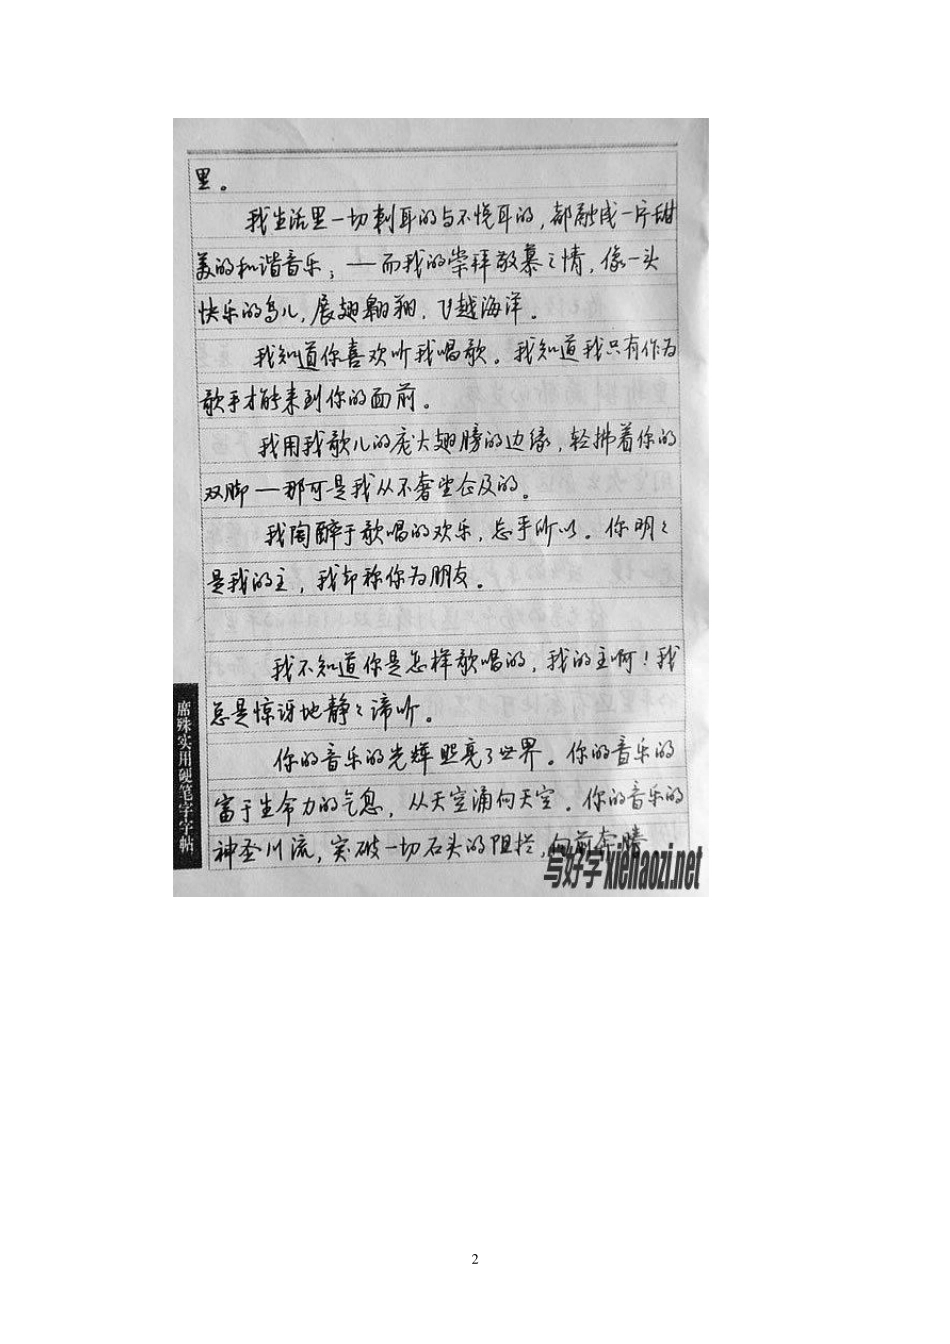 里。
我生活里一切刺耳的与不悦耳的，都融成一片甜
美的和谐音乐；—而我的崇拜敬慕之情，像一头
快乐的鸟儿，展翅翱翔，飞越海洋。
我知道你喜欢听我唱歌。我知道我只有作为
歌手才能来到你的面前。
我用我歌儿的庞大翅膀的边缘，轻拂着你的
双脚—那可是我从不奢望企及的。
我陶醉于歌唱的欢乐，忘乎所以。你明々
是我的主，我却称你为朋友。
我不知道你是怎样歌唱的，我的主啊！我
总是惊讶地静々谛听。
你的音乐的光辉照亮了世界。你的音乐的
富于生命力的气息，从天空涌向天空。你的音乐的
神圣川流，突破一切石头的阻拦，向前奔腾
席殊实用硬笔字字帖
写好字xiehaozi.net
2